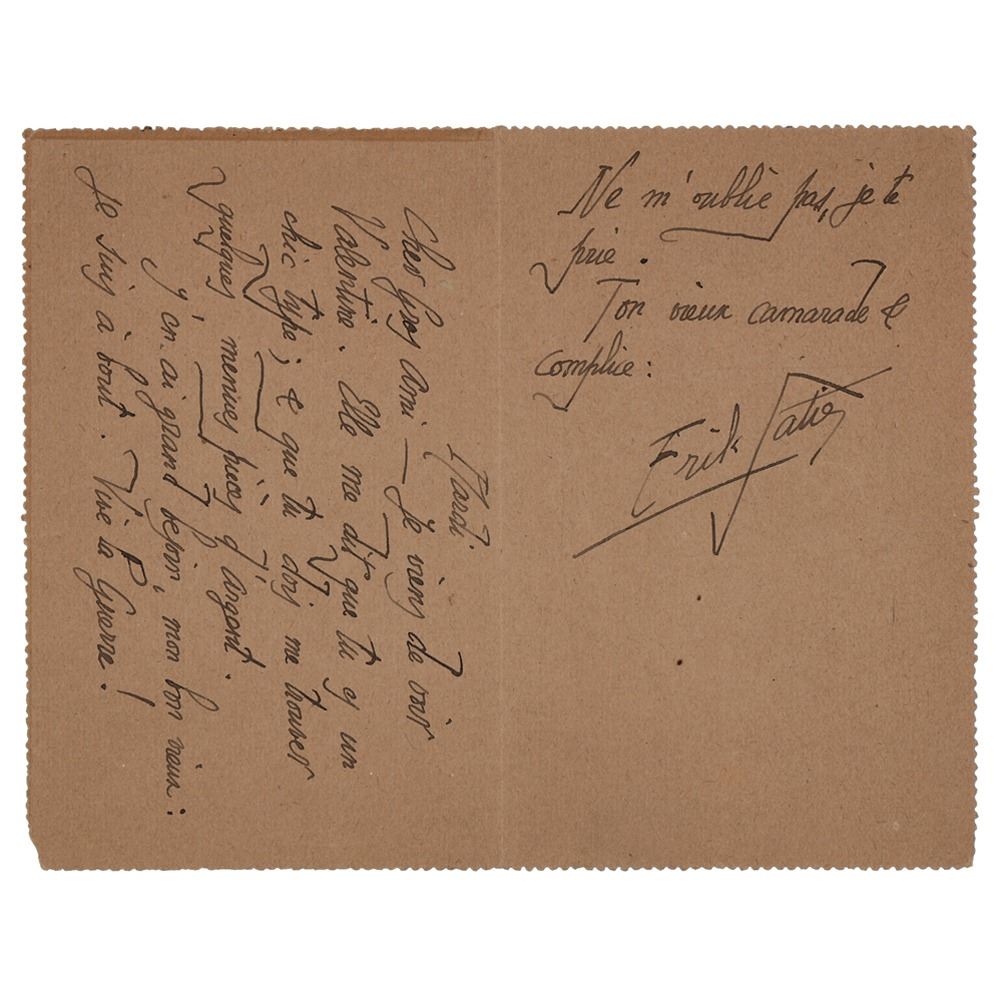 Mardi
Cher gros Ami — Je viens de voir
Valentine. Elle me dit que tu es un
chic type; & que tu dois me trouver
quelques menues pièces d'argent.
J'en ai grand besoin, mon bon vieux:
Je suis à bout. Vive la Guerre!
Ne m'oublie pas, je te
prie.
Ton vieux camarade &
complice:
Erik Satie